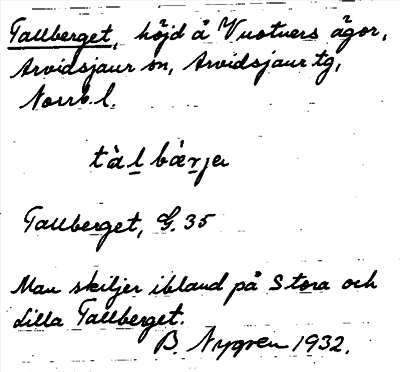 Tallberget, höjd å Vuotners ägor,
Arvidsjaur sn, Arvidsjaur tg,
Norrb. l.
tàl bær̲jer
Tallberget, G. 35
Man skiljer ibland på Stora och
Lilla Tallberget.
B. Nygren 1932.